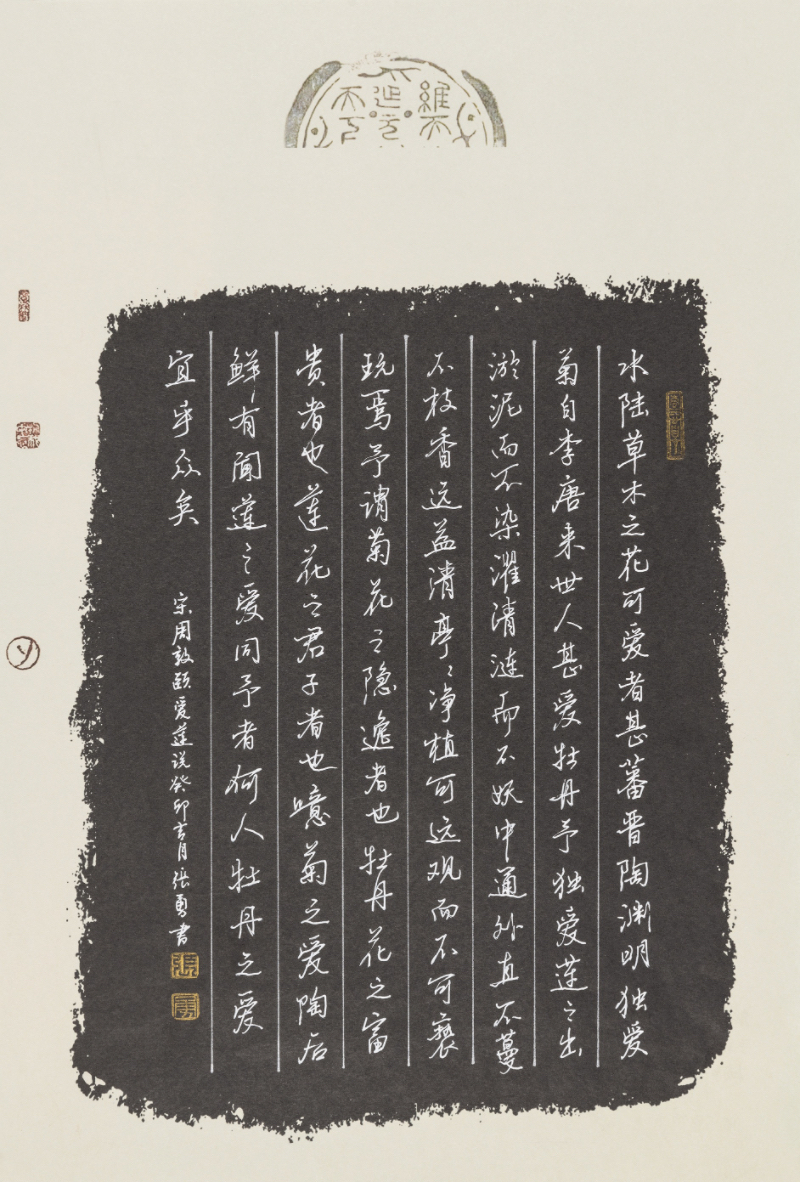 維天
延元
天下
水陆草木之花可爱者甚蕃晋陶渊明独爱
菊自李唐来世人甚爱牡丹予独爱莲之出
淤泥而不染濯清涟而不妖中通外直不蔓
不枝香远益清亭〻净植可远观而不可亵
玩焉予谓菊花之隐逸者也牡丹花之富
贵者也莲花之君子者也噫菊之爱陶后
鲜有闻莲之爱同予者何人牡丹之爱
宜乎众矣
宋周敦颐爱莲说癸卯吉月张勇书
張
勇